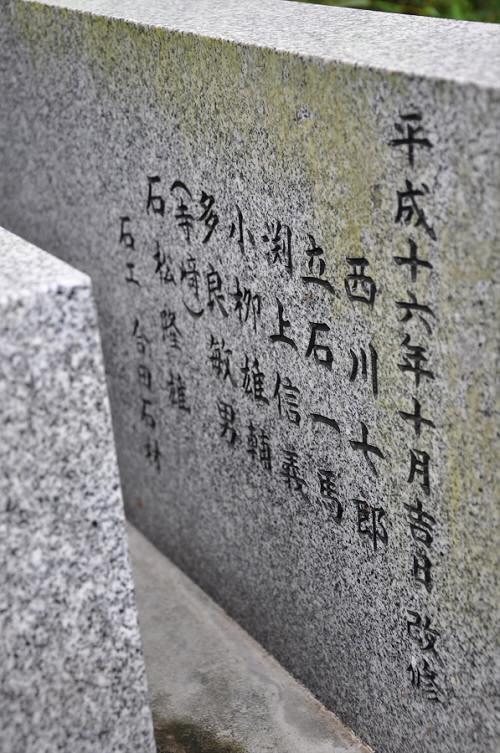 平成十六年十月吉日 改修
西川十郎
立石一馬
渕上信義
小柳雄輔
多良敏男
(寺壇)
石松隆雄
石工 合田石材